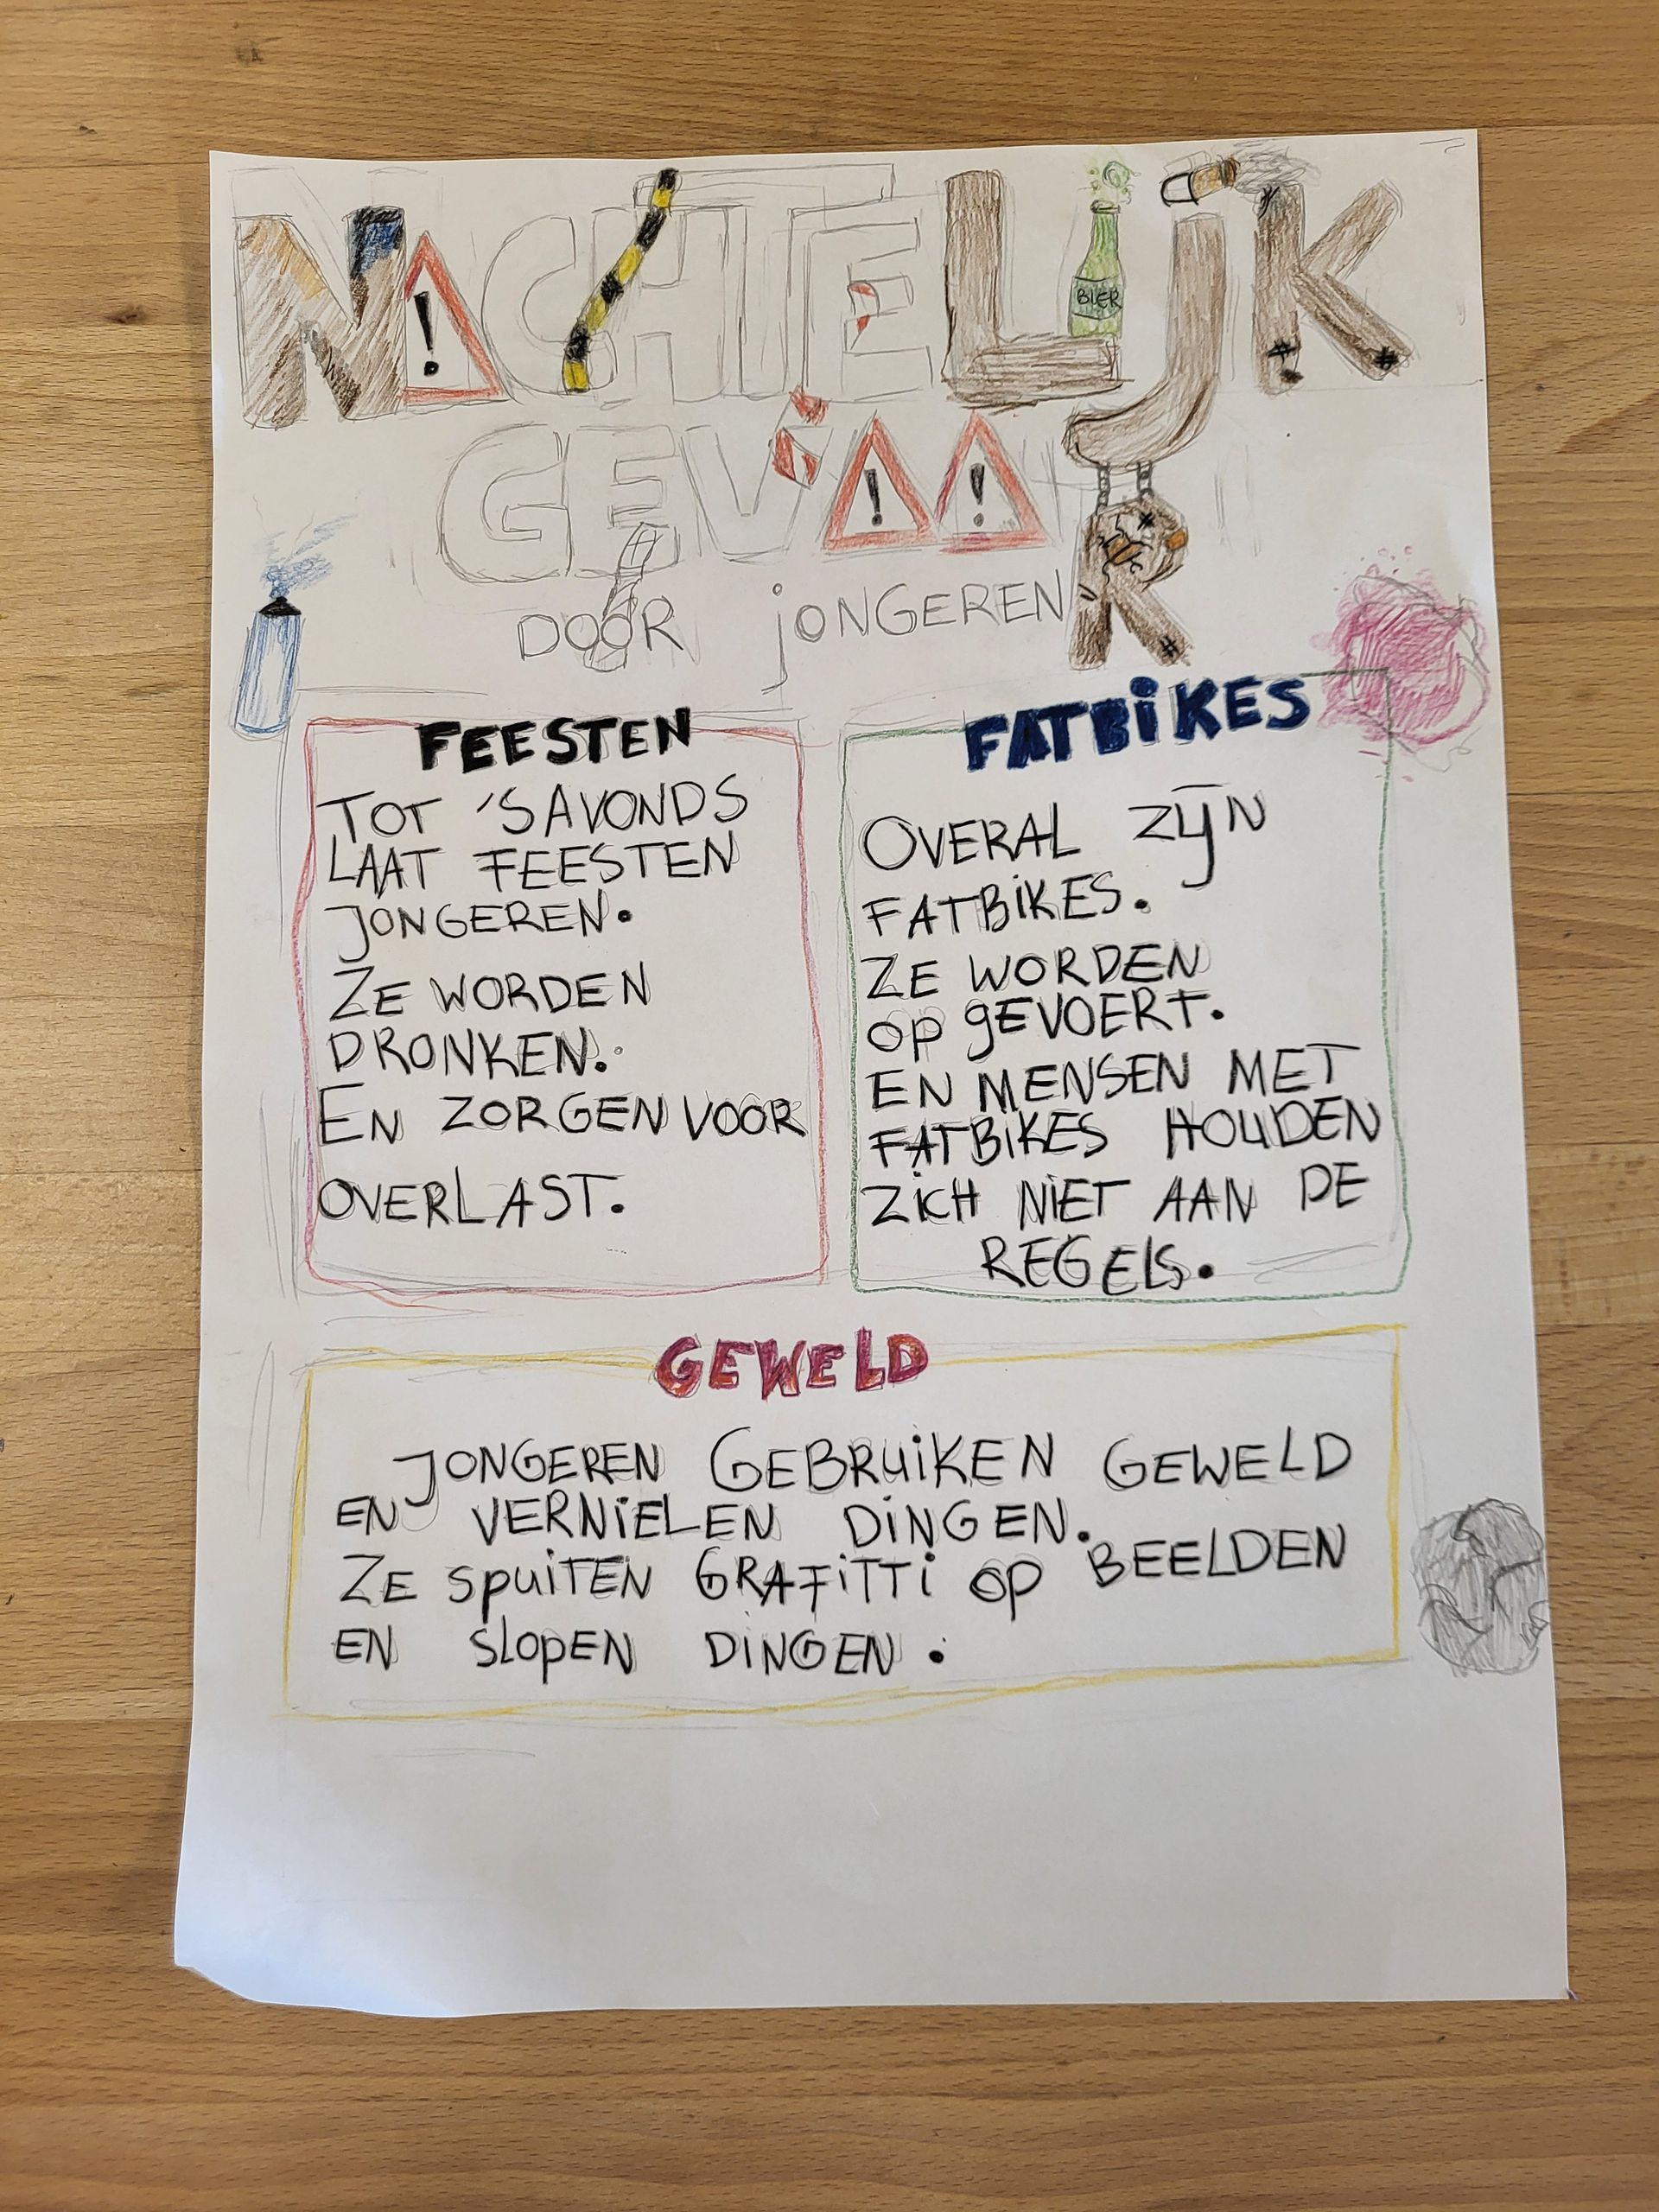 NACHTELIJK
BIER
GEVAAR
DOOR jONGEREN
FEESTEN
TOT 'S AVONDS
LAAT FEESTEN
JONGEREN.
ZE WORDEN
DRONKEN.
EN ZORGEN VOOR
OVERLAST.
FATBiKES
OVERAL ZIJN
FATBiKES.
ZE WORDEN
Op gEVOERT.
EN MENSEN MET
FATBiKES HOUDEN
ZiCH NiET AAN DE
REGELS.
GEWELD
JONGEREN GEBRUiKEN GEWELD
EN VERNiELEN DiNGEN.
ZE SpUiTEN GRAFiTTi Op BEELDEN
EN SLOpEN DiNGEN.